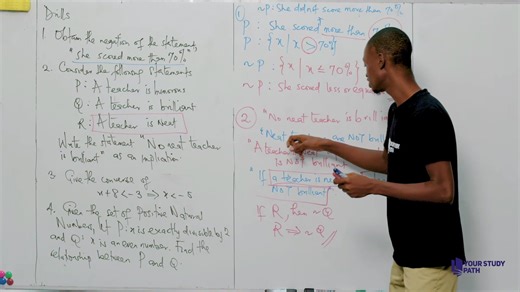 Drills
1. Obtain the negation of the statement,
"She scored more than 70%"
2. Consider the following statements
P: A teacher is humorous
Q: A teacher is brilliant
R: A teacher is Neat
Write the statement "No neat teacher
is brilliant" as an implication
3. Give the converse of
x+8 < -3 ⇒ x < -5
4. Given the set of Positive Natural
Numbers, let P: x is exactly divisible by 2
and Q: x is an even number. Find the
relationship between P and Q.
① ~P: She did not score more than 70%
P: She scored more than 70%
P: {x | x > 70%}
~P: {x | x ≤ 70%}
~P: She scored less or equal
② "No neat teacher is brilliant
"Neat are NOT brilliant
"A teacher
is NOT brilliant
"If a teacher is neat
NOT brilliant
If R, then ~Q
R ⇒ ~Q //
YOUR STUDY
PATH